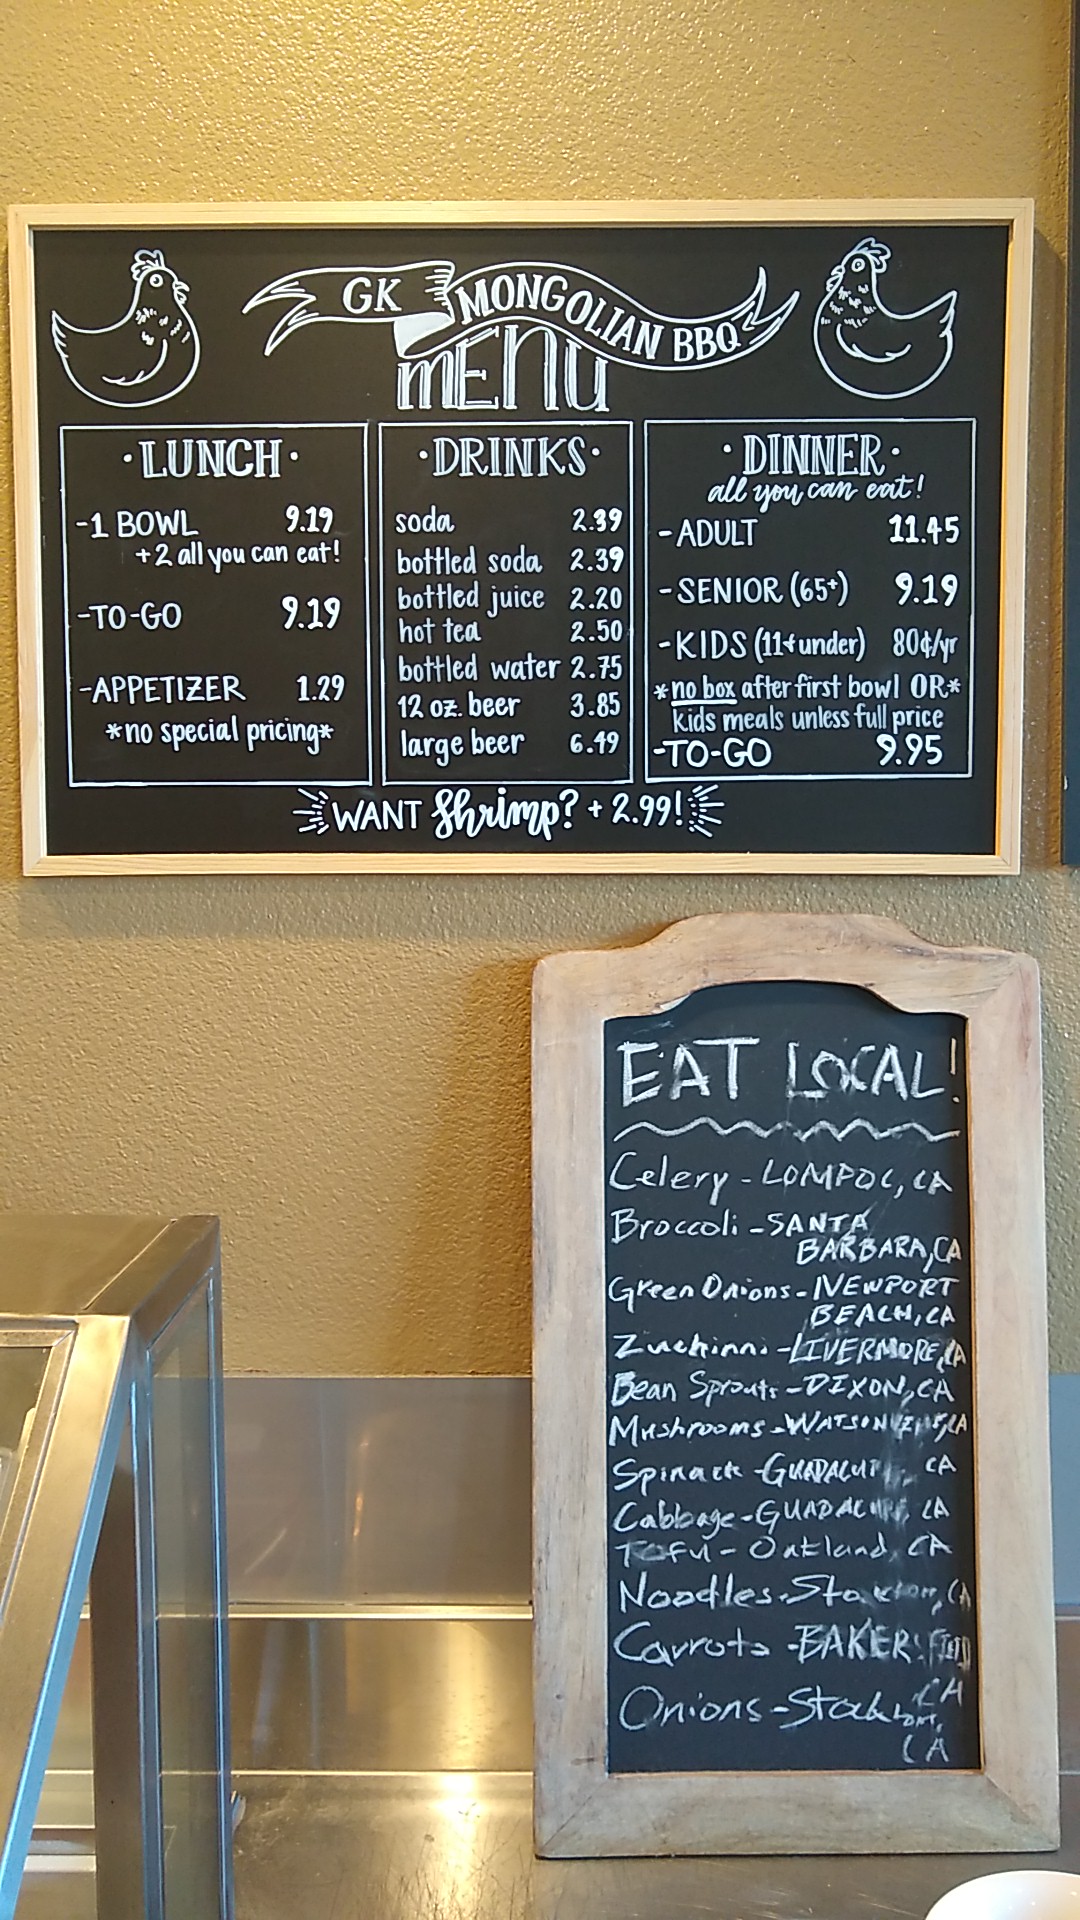 GK MONGOLIAN BBQ
MENU
·LUNCH·
-1 BOWL 9.19
+2 all you can eat!
-TO-GO 9.19
-APPETIZER 1.29
*no special pricing*
·DRINKS·
soda 2.39
bottled soda 2.39
bottled juice 2.20
hot tea 2.50
bottled water 2.75
12 oz. beer 3.85
large beer 6.49
·DINNER·
all you can eat!
-ADULT 11.45
-SENIOR (65+) 9.19
-KIDS (11+under) 80¢/yr
*no box after first bowl OR*
kids meals unless full price
-TO-GO 9.95
WANT Shrimp? + 2.99!
EAT LOCAL!
Celery - LOMPOC, CA
Broccoli - SANTA
BARBARA, CA
Green Onions - NEWPORT
BEACH, CA
Zucchinni - LIVERMORE, CA
Bean Sprouts - DIXON, CA
Mushrooms - WATSONVILLE, CA
Spinach - GUADALUPE, CA
Cabbage - GUADALUPE, CA
TOFU - Oakland, CA
Noodles - Stockton, CA
Carrots - BAKERSFIELD
CA
Onions - Stockton,
CA